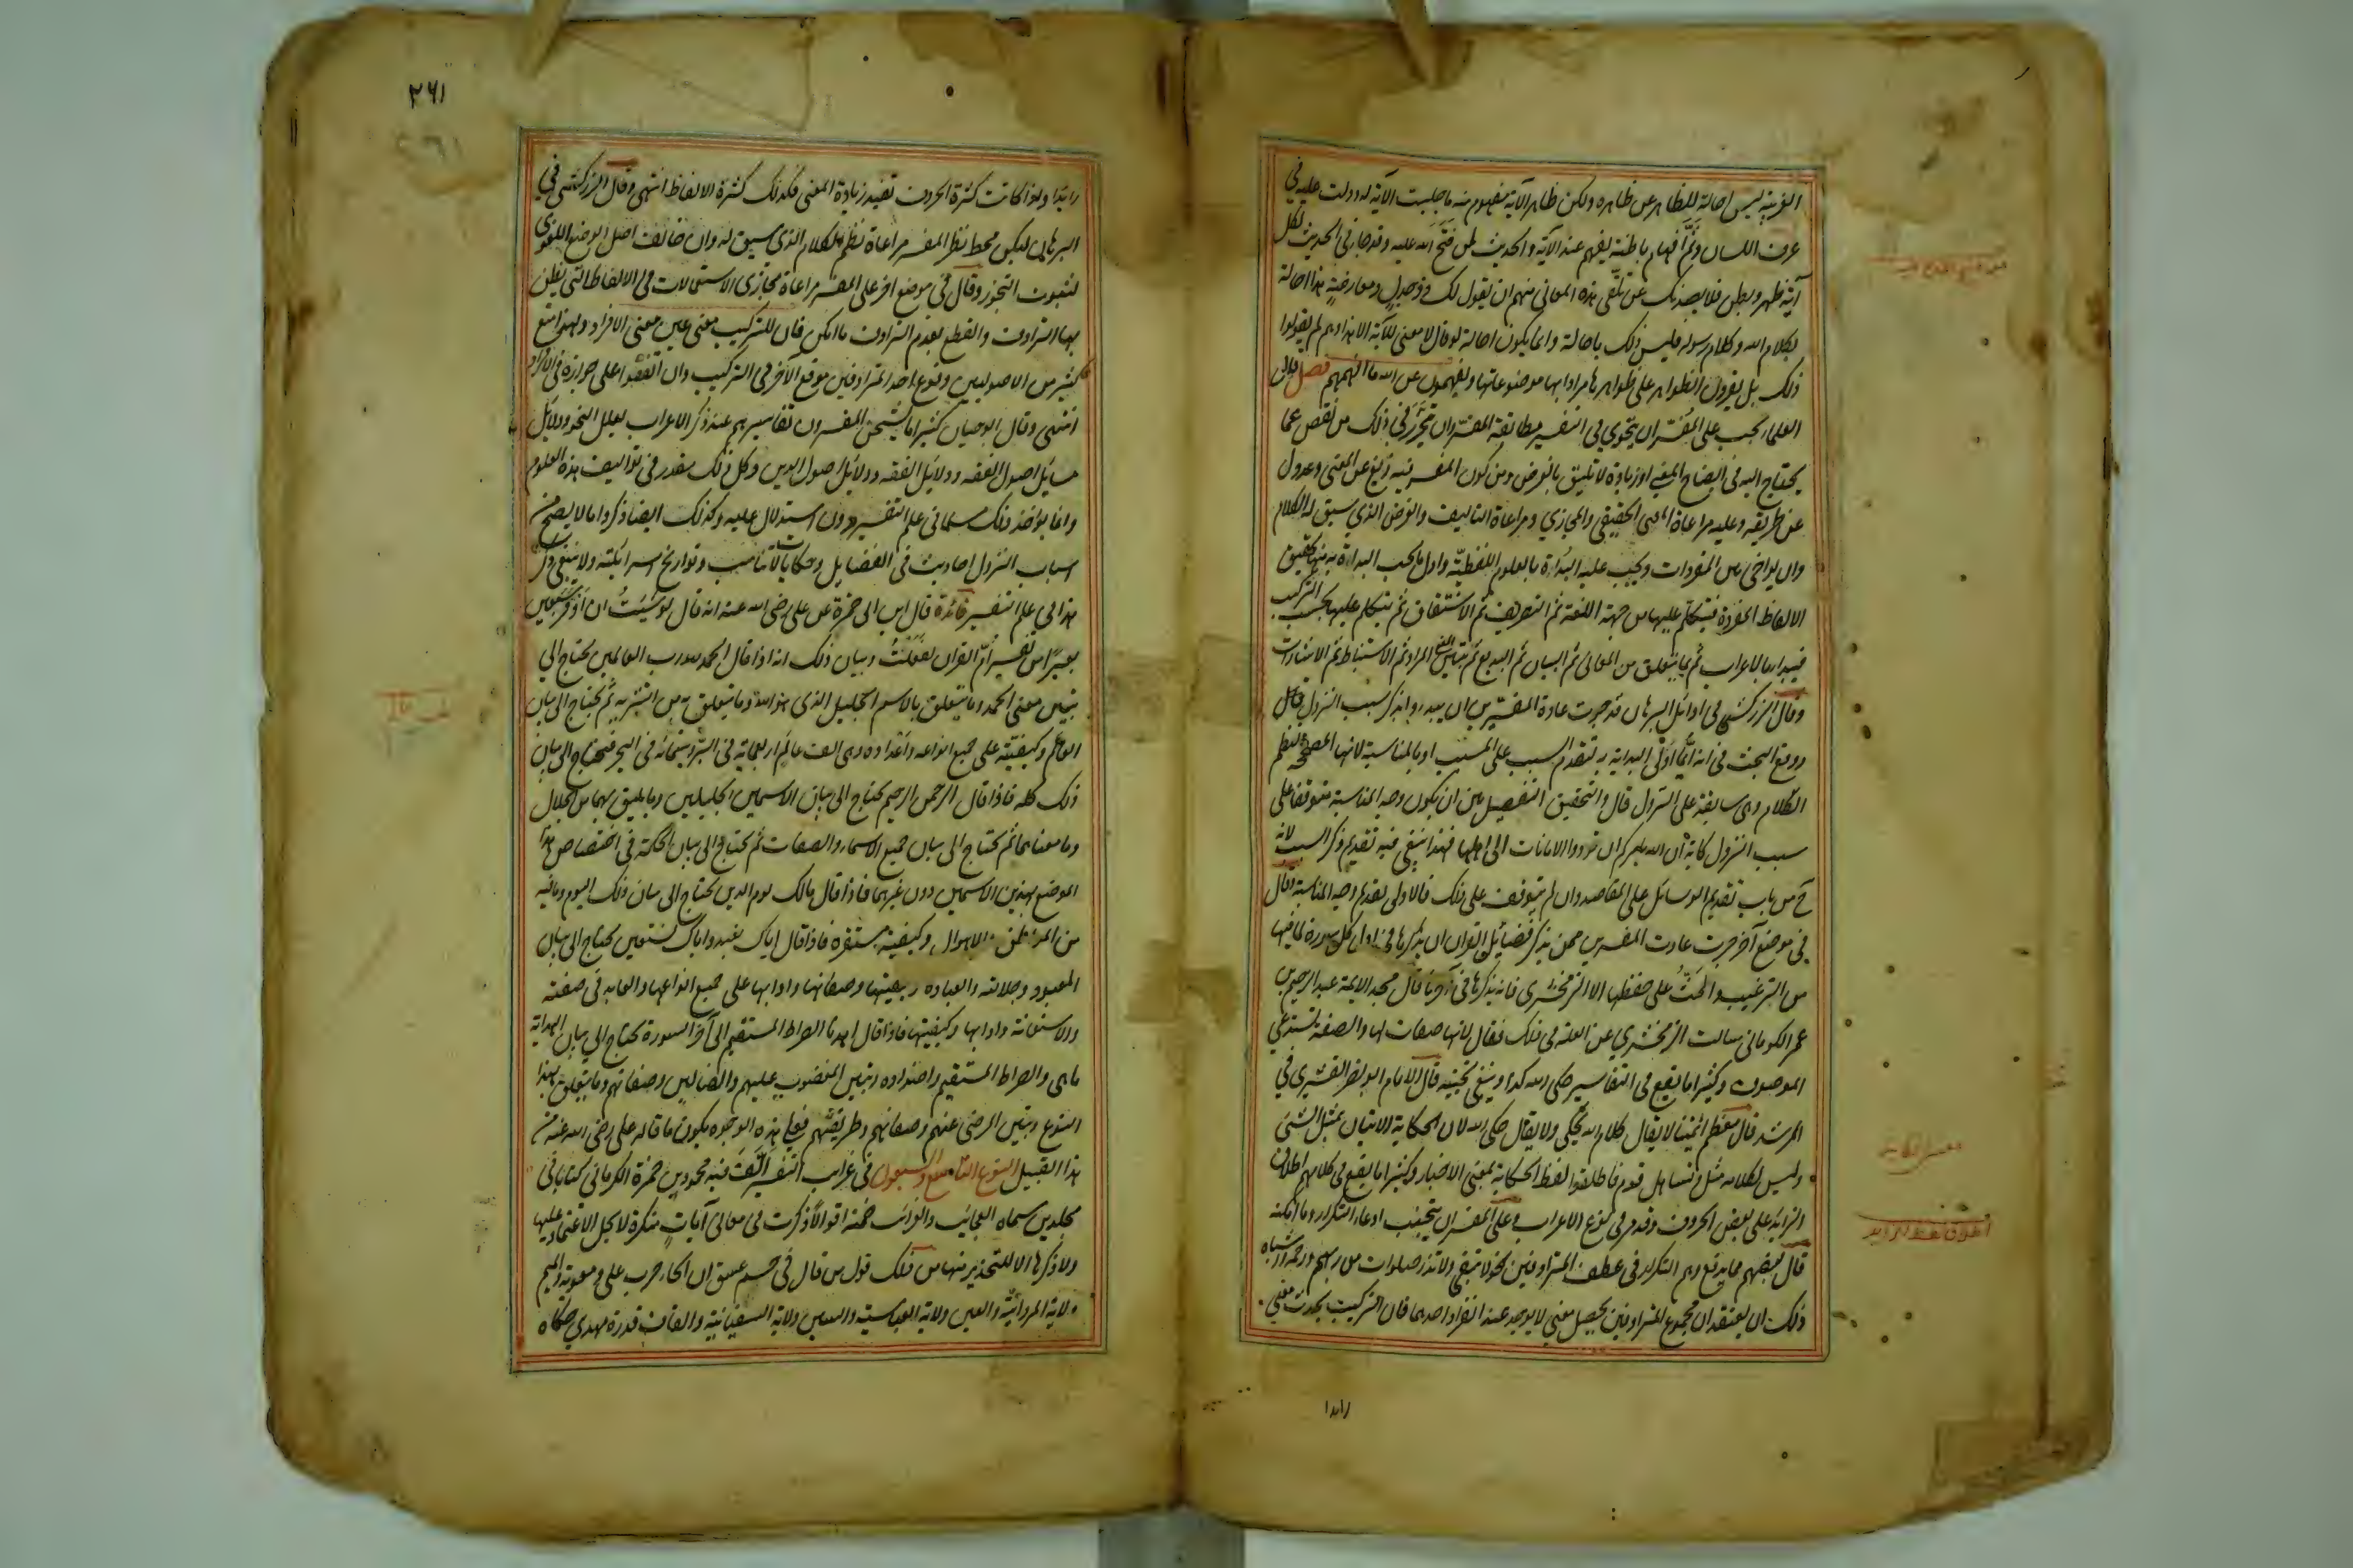 الغريبة ليس احالة للظاهر عن ظاهره ولكن ظاهر الآية مفهوم منه ما جلبت الآية له ودلت عليه في
عرف اللسان وثَمَّ افهام باطنة يفهم عند الآية والحديث لمن فتح الله عليه وقد جاء في الحديث لكل
آية ظهر وبطن فلا يصدنك عن تلقى هذه المعاني منهم ان يقول لك ذو جدل ومعارضة هذا احالة
لكلام الله وكلام رسوله فليس ذلك باحالة وانما يكون احالة لو قال لا معنى للآية الا هذا وهم لم يقولوا
ذلك بل يقرون الظواهر على ظواهرها مرادا بها موضوعاتها ويفهمون عن الله ما افهمهم فصل قال
العلماء يجب على المفسّر ان يتحرى في التفسير مطابقة المفسّر وان يتحرّز في ذلك من نقص عما
يحتاج اليه في ايضاح المعنى او زيادة لا تليق بالغرض ومن كون المفسر فيه زيغ عن المعنى وعدول
عن طريقه وعليه مراعاة المعنى الحقيقي والمجازي ومراعاة التاليف والغرض الذي سيق له الكلام
وان يواخي بين المفردات ويجب عليه البداءة بالعلوم اللفظيّة واول ما يجب البداءة به منها تحقيق
الالفاظ المفردة فيتكلم عليها من جهة اللغة ثم التصريف ثم الاشتقاق ثم يتكلم عليها بحسب التركيب
فيبدا بالاعراب ثم بما يتعلق من المعاني ثم البيان ثم البديع ثم تبيين المعنى المراد ثم الاستنباط ثم الاشارات
وقال الزركشي في اوائل البرهان قد جرت عادة المفسّرين ان يبدءوا بذكر سبب النزول قال
ووقع البحث في انه ايّما اولى البداية به بتقدم السبب على المسبب او بالمناسبة لانها المصححة لنظم
الكلام وهى سابقة على النزول قال والتحقيق التفصيل بين ان يكون وجه المناسبة متوقفا على
سبب النزول كاية ان الله يامركم ان تؤدوا الامانات الى اهلها فهذا ينبغي فيه تقديم ذكر السبب لانه
ح من باب تقديم الوسائل على المقاصد وان لم يتوقف على ذلك فالاولى تقديم وجه المناسبة وقال
في موضع آخر جرت عادت المفسرين ممن يذكر فضائل القران ان يذكرها في اول كل سورة لما فيها
من الترغيب والحثّ على حفظها الا الزمخشري فانه يذكرها في آخرها قال مجد الايمة عبد الرحيم بن
عمر الكرماني سالت الزمخشري عن العلة في ذلك فقال لانها صفات لها والصفة تستدعي
الموصوف وكثيرا ما يقع في التفاسير حكى الله كذا وينبغي تجنبه قال الامام ابو نصر القشيري في
المرشد قال معظم ائمتنا لا يقال كلام الله يحكى ولا يقال حكى الله لان الحكاية الاتيان بمثل الشئ
وليس لكلامه مثل وتساهل قوم فاطلقوا لفظ الحكاية بمعنى الاخبار وكثيرا ما يقع في كلامهم اطلاق
الزائد على بعض الحروف وقد مر في نوع الاعراب وعلى المفسر ان يتجنب ادعاء التكرار ما امكنه
قال بعضهم مما يدفع وهم التكرار في عطف المترادفين نحو لا تبقى ولا تذر صلوات من ربهم ورحمة واشباه
ذلك ان يعتقد ان مجموع المترادفين يحصل معنى لا يوجد عند انفراد احدهما فان التركيب يحدث معنى
زايدا
٢٦١
زايدا واذا كانت كثرة الحروف تفيد زيادة المعنى فكذلك كثرة الالفاظ انتهى وقال الزركشي في
البرهان ليكن محط نظر المفسر مراعاة نظم الكلام الذي سيق له وان خالف اصل الوضع اللغوي
لثبوت التجوز وقال في موضع اخر على المفسر مراعاة مجازي الاستعمالات في الالفاظ التي يظن
بها الترادف والقطع بعدم الترادف ما امكن فان للتركيب معنى غير معنى الافراد ولهذا منع
كثير من الاصوليين وقوع احد المترادفين موقع الآخر في التركيب وان اتفقوا على جوازه في الافراد
انتهى وقال ابو حيان كثيرا ما يشحن المفسرون تفاسيرهم عند ذكر الاعراب بعلل النحو ودلايل
مسايل اصول الفقه ودلايل الفقه ودلايل اصول الدين وكل ذلك مقدر في تواليف هذه العلوم
وانما يؤخذ ذلك مسلما في علم التفسير دون استدلال عليه وكذلك ايضا ذكروا ما لا يصح من
اسباب النزول احاديث في الفضايل وحكايات لا تناسب وتواريخ اسرائيلية ولا ينبغي ذكر
هذا في علم التفسير فائدة قال ابن ابي حمزة عن علي رضي الله عنه انه قال لو شئتُ ان اوقر سبعين
بعيرا من تفسير امّ القران لفعلتُ وبيان ذلك انه اذا قال الحمد لله رب العالمين يحتاج الى
تبيين معنى الحمد وما يتعلق بالاسم الجليل الذي هو الله وما يتعلق به من التنزيه ثم يحتاج الى بيان
العالم وكيفيّته على جميع انواعه واعداده وهى الف عالَم اربعماية في البرّ وستمائة في البحر فيحتاج الى بيان
ذلك كله فاذا قال الرحمن الرحيم يحتاج الى بيان الاسمين الجليلين وما يليق بهما من الجلال
وما معناهما ثم يحتاج الى بيان جميع الاسماء والصفات ثم يحتاج الى بيان الحكمة في اختصاص هذا
الموضع بهذين الاسمين دون غيرهما فاذا قال مالك يوم الدين يحتاج الى بيان ذلك اليوم وما فيه
من المواطن والاهوال وكيفية مستقره فاذا قال اياك نعبد واياك نستعين يحتاج الى بيان
المعبود وجلالته والعبادة وكيفيتها وصفاتها وادابها على جميع انواعها والعابد في صفته
والاستعانة وادابها وكيفيتها فاذا قال اهدنا الصراط المستقيم الى آخر السورة يحتاج الى بيان الهداية
ماهى والصراط المستقيم واضداده وتبيين المغضوب عليهم والضالين وصفاتهم وما يتعلق بهذا
النوع وتبيين المرضى عنهم وصفاتهم وطريقتهم فعلى هذه الوجوه يكون ما قاله على رضى الله عنه من
هذا القبيل النوع التاسع والسبعون في غرايب التفسير الّف فيه محمود بن حمزة الكرماني كتابا في
مجلدين سماه العجائب والغرائب ضمنه اقوالا ذكرت في معاني آيات منكرة لا يحل الاعتماد عليها
ولا ذكرها الا للتحذير منها من ذلك قول من قال في حم عسق ان الحاء حرب على ومعوية والميم
ولاية المروانيّة والعين ولاية العباسية والسين ولاية السفيانية والقاف قدرة مهدي حكاه